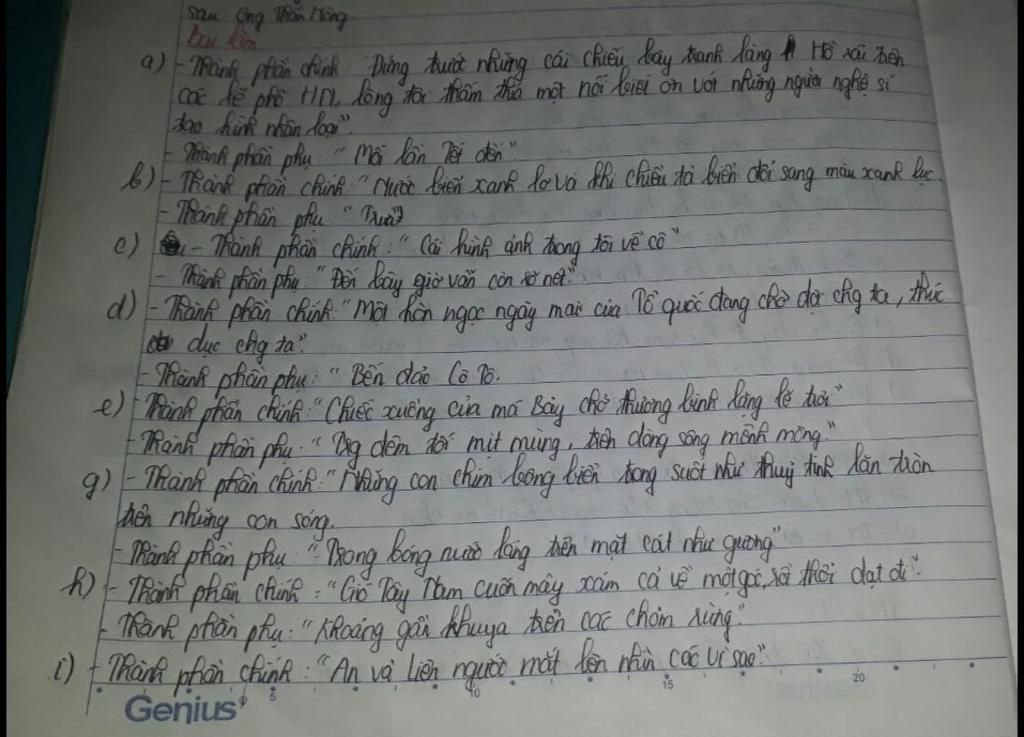 sau ông Thần Nông.
bài làm
a) - Thành phần chính: Đứng trước những cái chiếu bày tranh làng Hồ xải trên
các lề phố HN, lòng tôi thấm thía một nỗi biết ơn với những người nghệ sĩ
tạo hình nhân loại".
- Thành phần phụ: "Mỗi lần Tết đến"
b) - Thành phần chính: "Nước biển xanh lơ và khi chiều tà biến đổi sang màu xanh lục.
- Thành phần phụ: "Trưa"
c) - Thành phần chính: "Cái hình ảnh trong tôi về cô"
- Thành phần phụ: "Đến bây giờ vẫn còn rõ nét."
d) - Thành phần chính: "Một hòn ngọc ngày mai của Tổ quốc đang chờ đợi chg ta, thúc
dục chg ta".
- Thành phần phụ: "Bến đảo Cô Tô.
e) - Thành phần chính: "Chiếc xuồng của má Bảy chở thương binh lặng lẽ trôi"
- Thành phần phụ: "Trg đêm tối mịt mùng, trên dòng sông mênh mông."
g) - Thành phần chính: "Những con chim bông biển trong suốt như thuỷ tinh lăn tròn
trên những con sóng.
- Thành phần phụ: "Trong bóng nước láng trên mặt cát như gương"
h) - Thành phần chính: "Gió Tây Nam cuốn mây xám cả về một góc, rồi thổi dạt đi".
- Thành phần phụ: "Khoảng gần khuya trên các chòm rừng."
i) - Thành phần chính: "An và Liên ngước mắt lên nhìn các vì sao."
Genius 5 10 15 20